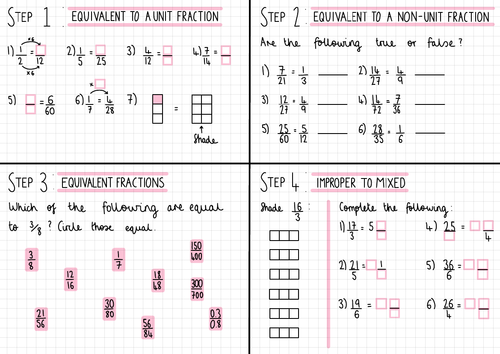 STEP 1 EQUIVALENT TO A UNIT FRACTION
×6
1) 1/2 = □/12
×6
2) 1/5 = □/25
3) 4/12 = □/□
4) 7/14 = □/□
5) □/□ = 6/60
×□
6) 1/7 = 4/28
7) =
Shade
STEP 2 EQUIVALENT TO A NON-UNIT FRACTION
Are the following true or false?
1) 7/21 = 1/3
2) 14/27 = 4/9
3) 12/27 = 4/9
4) 14/72 = 7/36
5) 25/60 = 5/12
6) 28/35 = 1/6
STEP 3 EQUIVALENT FRACTIONS
Which of the following are equal
to 3/8? Circle those equal.
3/8
12/16
1/7
18/48
150/400
300/700
21/56
30/80
56/84
0.3/0.8
STEP 4 IMPROPER TO MIXED
Shade 16/3:
Complete the following:
1) 17/3 = 5 □/□
2) 21/5 = □ 1/□
3) 19/6 = □ □/□
4) 25/□ = □ □/4
5) 36/6 = □
6) 26/4 = □ □/□